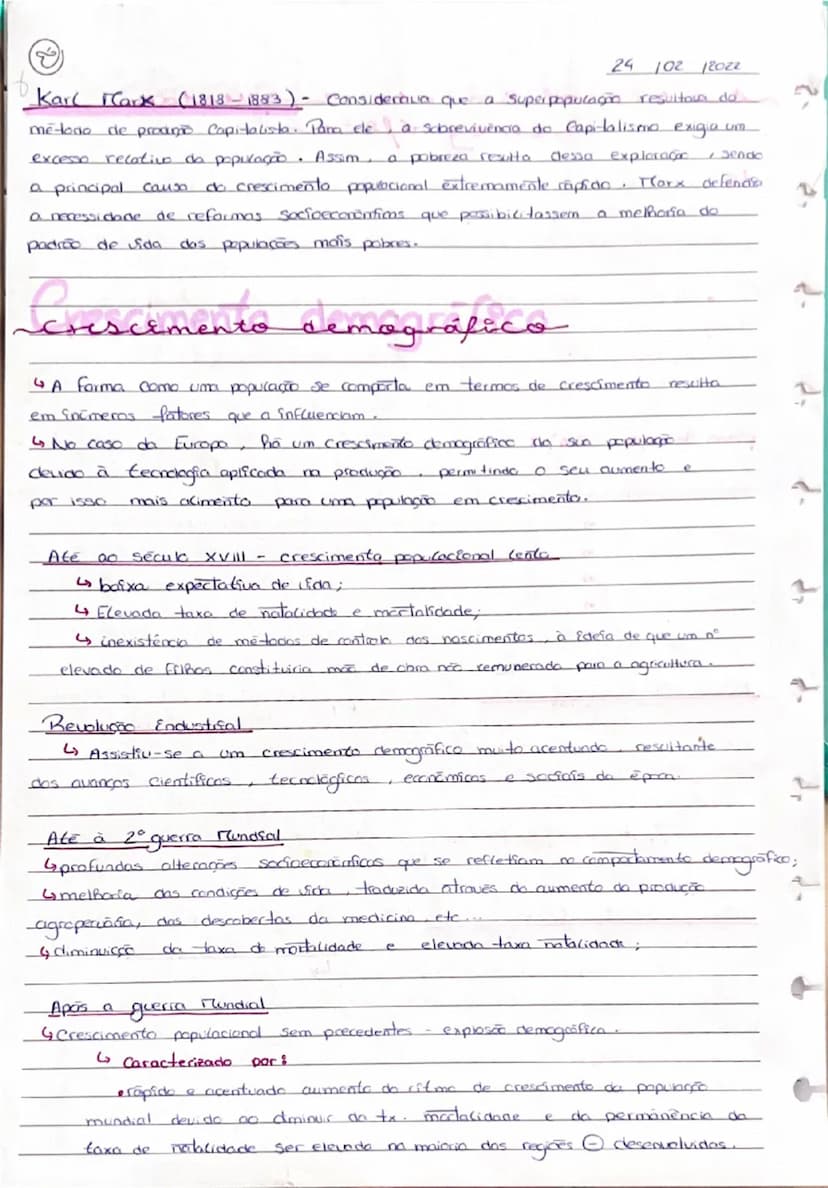 24 / 02 / 2022
Karl Marx (1818-1883) - Considerava que a superpopulação resultava do
método de produção Capitalista. Para ele, a sobrevivência do Capitalismo exigia um
excesso relativo da população. Assim, a pobreza resulta dessa exploração, sendo
a principal causa do crescimento populacional extremamente rápido. Marx defendia
a necessidade de reformas socioeconómicas que possibilitassem a melhoria do
padrão de vida das populações mais pobres.
Crescimento demográfico
↳ A forma como uma população se comporta em termos de crescimento resulta
em inúmeros fatores que a influenciam.
↳ No caso da Europa, há um crescimento demográfico da sua população
devido à tecnologia aplicada na produção, permitindo o seu aumento e
por isso mais alimento para uma população em crescimento.
Até ao século XVIII - crescimento populacional lento
↳ baixa expectativa de vida;
↳ Elevada taxa de natalidade e mortalidade;
↳ inexistência de métodos de controlo dos nascimentos, à ideia de que um nº
elevado de filhos constituiria mão de obra não remunerada para a agricultura.
Revolução Industrial
↳ Assistiu-se a um crescimento demográfico muito acentuado, resultante
dos avanços científicos, tecnológicos, económicos e sociais da época.
Até à 2º guerra Mundial
↳ profundas alterações socioeconómicas que se refletiam no comportamento demográfico;
↳ melhoria das condições de vida, traduzida através do aumento da produção
agropecuária, das descobertas da medicina, etc...
↳ diminuição da taxa de mortalidade e elevada taxa natalidade;
Após a guerra Mundial
↳ Crescimento populacional sem precedentes - explosão demográfica.
↳ Caracterizado por:
• rápido e acentuado aumento do ritmo de crescimento da população
mundial devido ao diminuir da tx. mortalidade e da permanência da
taxa de natalidade ser elevada na maioria das regiões ⊖ desenvolvidas.